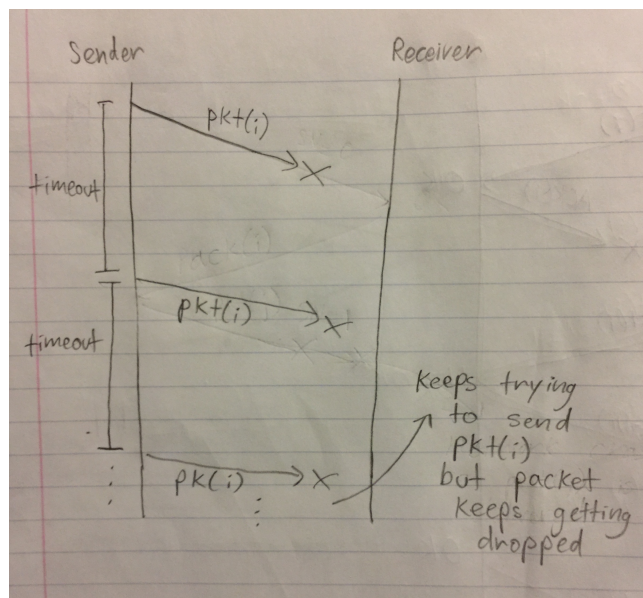 Sender
Receiver
pkt(i)
timeout
pkt(i)
timeout
keeps trying
to send
pkt(i)
but packet
keeps getting
dropped
pk(i)